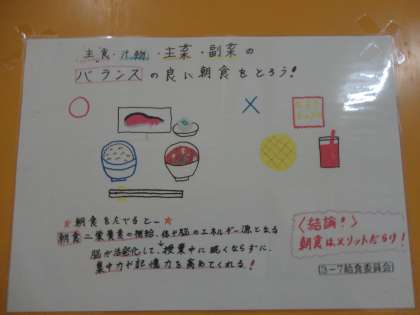 主食・汁物・主菜・副菜の
バランスの良い朝食をとろう!
○
×
★朝食を食べると…★
朝食=栄養素の補給、体や脳のエネルギー源となる
脳が活発化して、授業中に眠くならずに、
集中力や記憶力を高めてくれる!
〈結論!〉
朝食はメリットだらけ!
3-7給食委員会